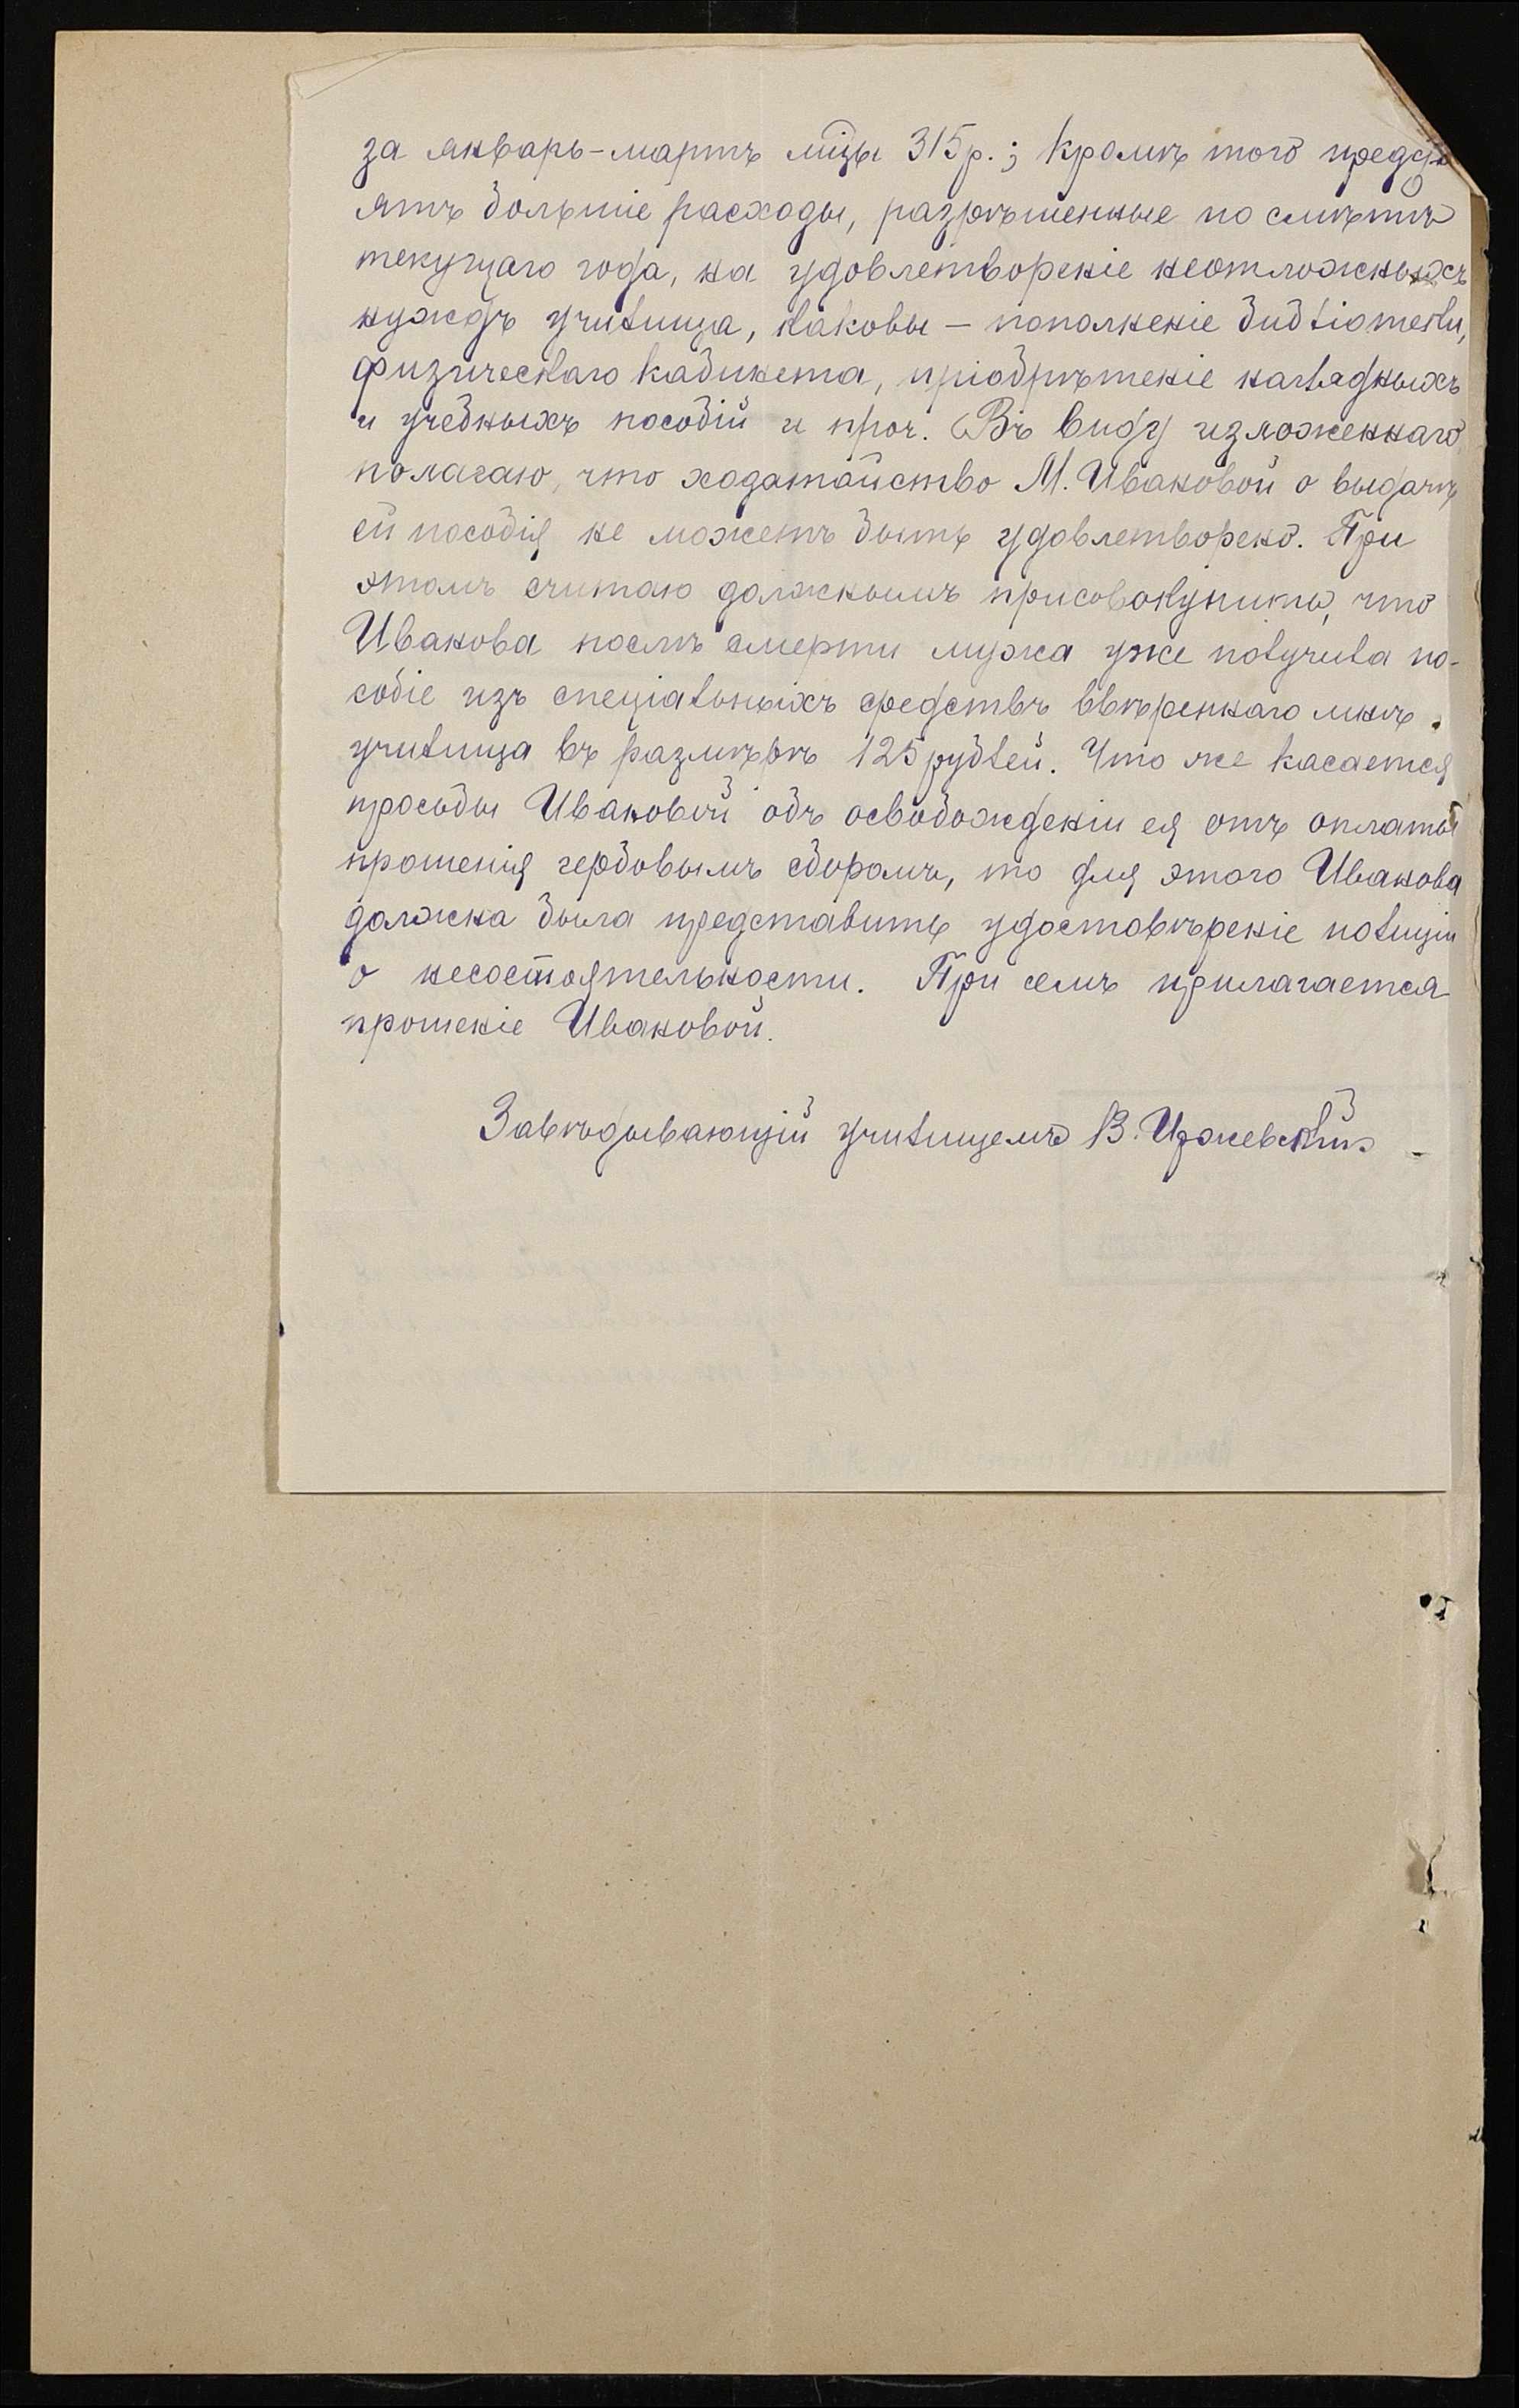 за январь-мартъ мѣцы 315 р.; кромѣ того предсто
ятъ большіе расходы, разрѣшенные по смѣтѣ
текущаго года, на удовлетвореніе неотложныхъ
нуждъ училища, каковы – пополненіе библіотеки,
физическаго кабинета, пріобрѣтеніе наглядныхъ
и учебныхъ пособій и проч. Въ виду изложеннаго
полагаю, что ходатайство М. Ивановой о выдачѣ
ей пособія не можетъ быть удовлетворено. При
этомъ считаю должнымъ присовокупить, что
Иванова послѣ смерти мужа уже получила по-
собіе изъ спеціальныхъ средствъ ввѣреннаго мнѣ
училища въ размѣрѣ 125 рублей. Что же касается
просьбы Ивановой объ освобожденіи ея отъ оплаты
прошенія гербовымъ сборомъ, то для этого Иванова
должна была представить удостовѣреніе полиціи
о несостоятельности. При семъ прилагается
прошеніе Ивановой.
Завѣдывающій училищемъ В. Ижевскій